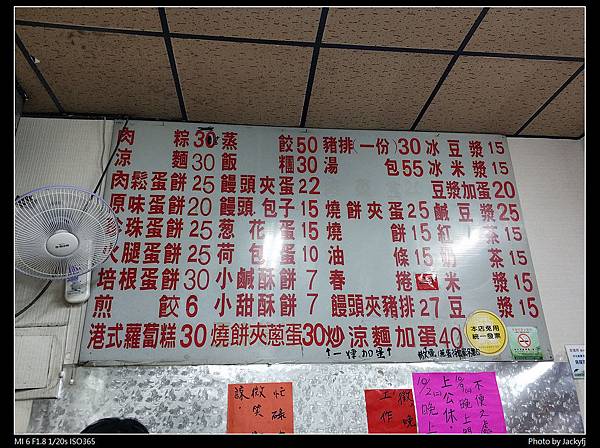 肉粽30 蒸餃50 豬排(一份)30 冰豆漿15
涼麵30 飯糰30 湯包55 冰米漿15
肉鬆蛋餅25 饅頭夾蛋22 豆漿加蛋20
原味蛋餅20 饅頭.包子15 燒餅夾蛋25 鹹豆漿25
珍珠蛋餅25 葱花蛋15 燒餅15 紅茶15
火腿蛋餅25 荷包蛋10 油條15 奶茶15
培根蛋餅30 小鹹酥餅7 春捲 米漿15
煎餃6 小甜酥餅7 饅頭夾豬排27 豆漿15
港式蘿蔔糕30 燒餅夾蔥蛋30 炒涼麵加蛋40
本店免用
統一發票
MI 6 F1.8 1/20s ISO365
Photo by Jackyfj